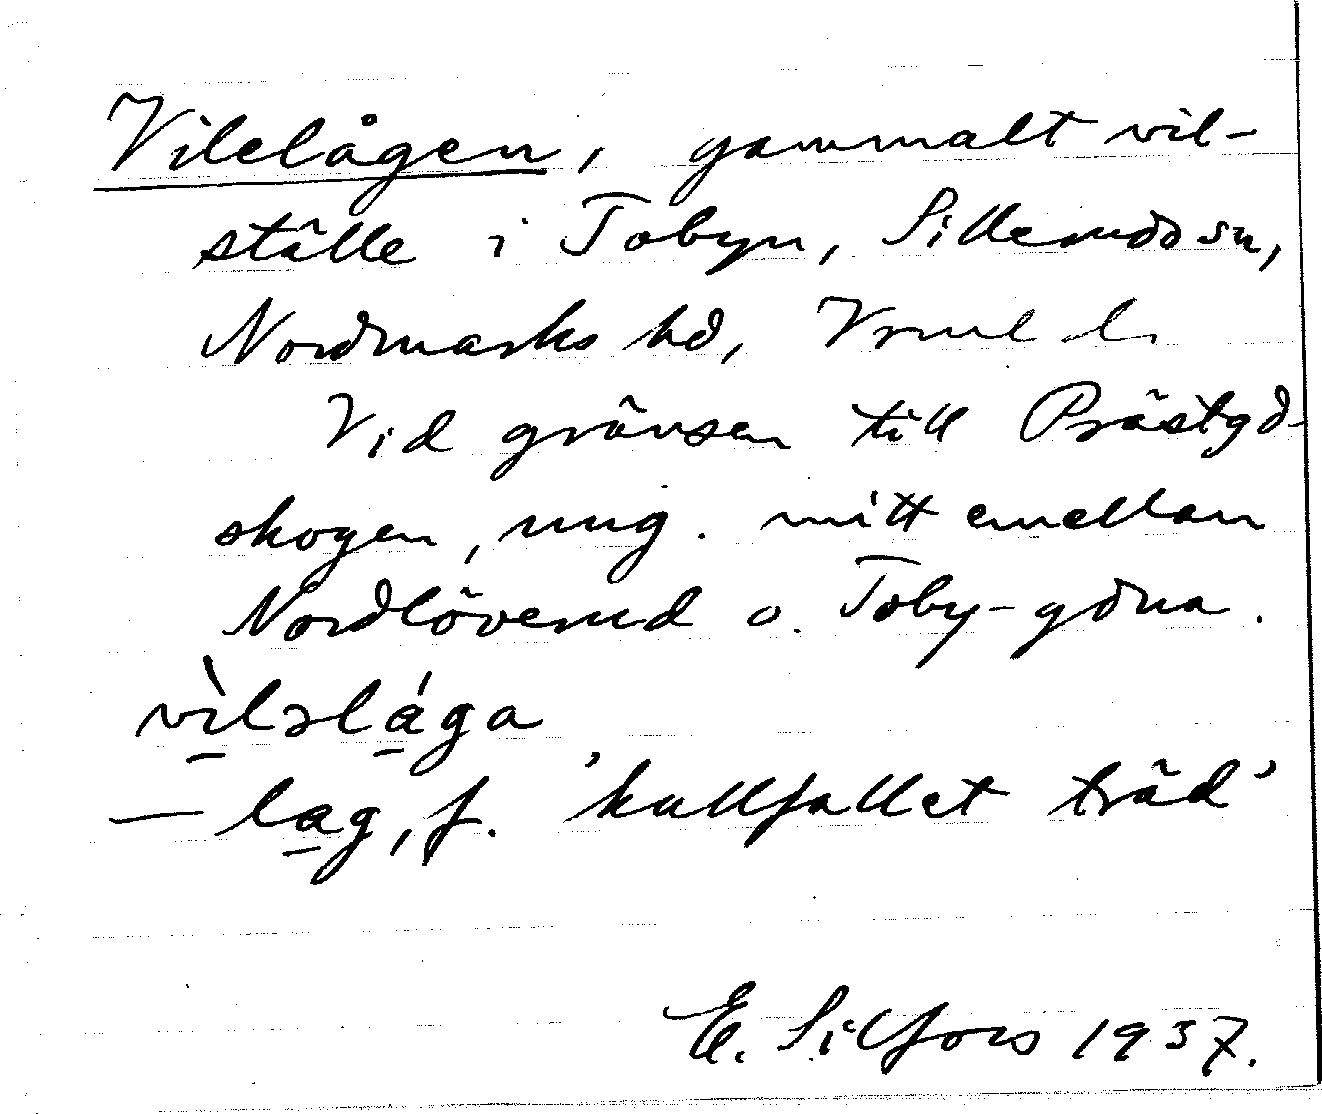 Vilelågen, gammalt vil-
ställe i Tobyn, Sillerudd sn,
Nordmarks hd, Vrml l.
Vid gränsen till Prästgd-
skogen, ung. mitt emellan
Nordlöverud o. Toby-gdna.
vìləlága
— lag, f. 'kullfallet träd'
E. Silfors 1937.